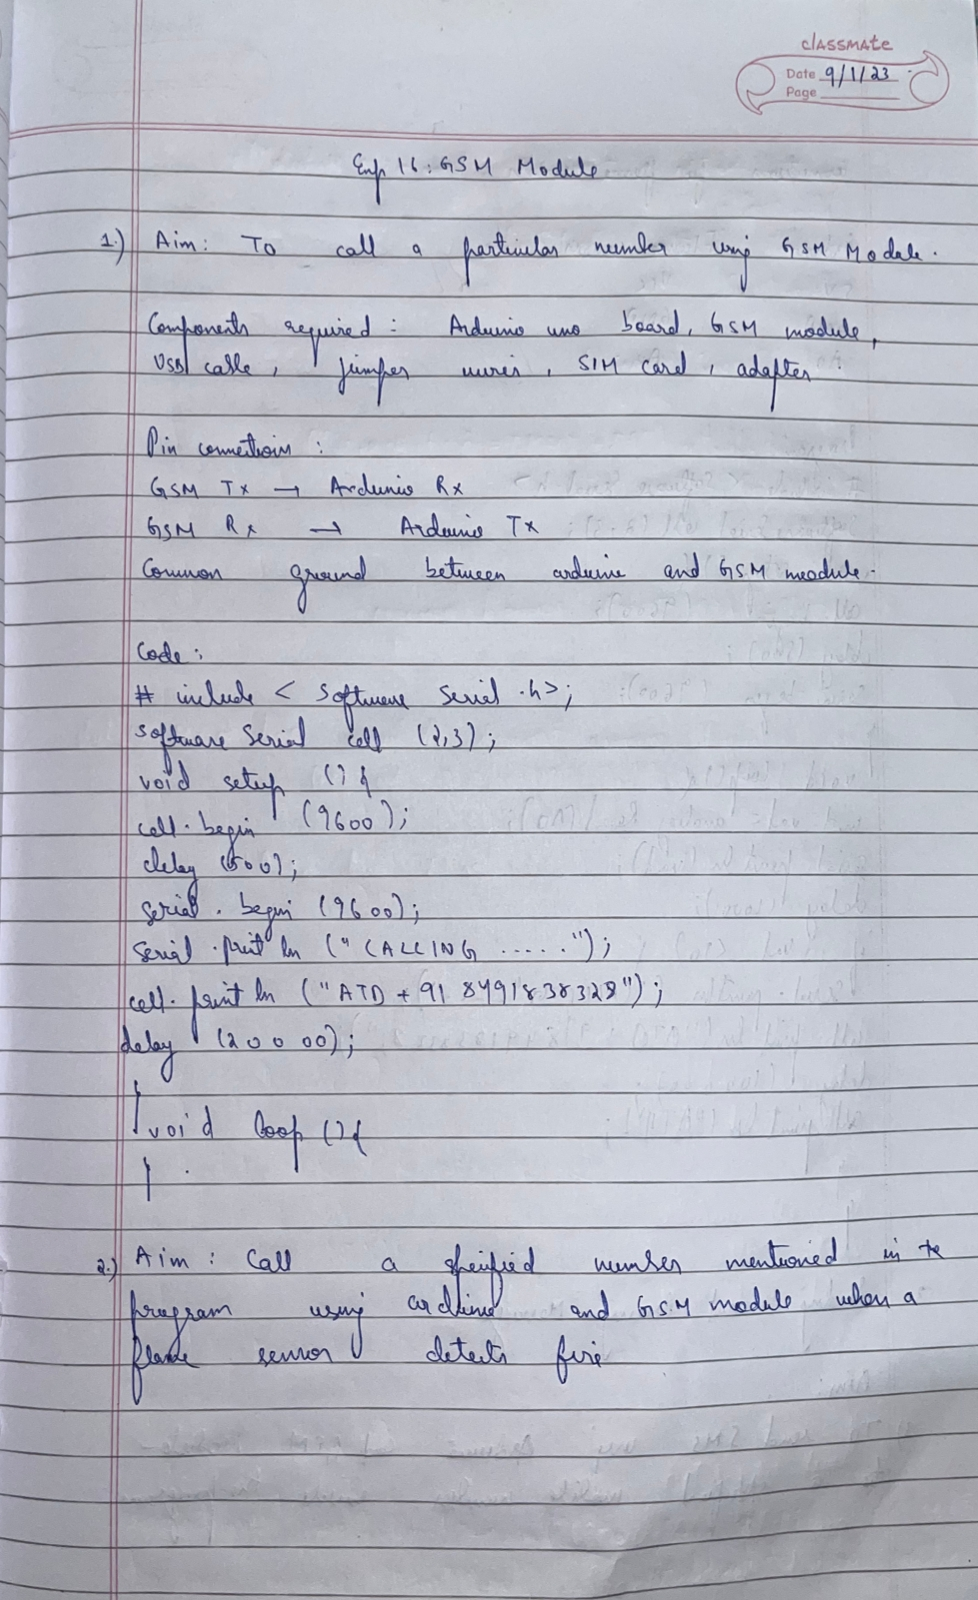 classmate
Date 9/1/23
Page
Exp 16: GSM Module
1.) Aim: To call a particular number using GSM Module.
Components required: Arduino uno board, GSM module,
USB cable, jumper wires, SIM card, adapter
Pin connections:
GSM Tx → Arduino Rx
GSM Rx → Arduino Tx
Common ground between arduino and GSM module.
Code:
# include < Software Serial .h>;
software Serial cell (2,3);
void setup () {
cell. begin (9600);
delay (500);
serial. begin (9600);
serial. print ln (" CALLING .....");
cell. print ln ("ATD + 91 8491838328");
delay (20000);
}
void loop () {
}
2.) Aim: Call a specified number mentioned in the
program using arduino and GSM module when a
flame sensor detects fire